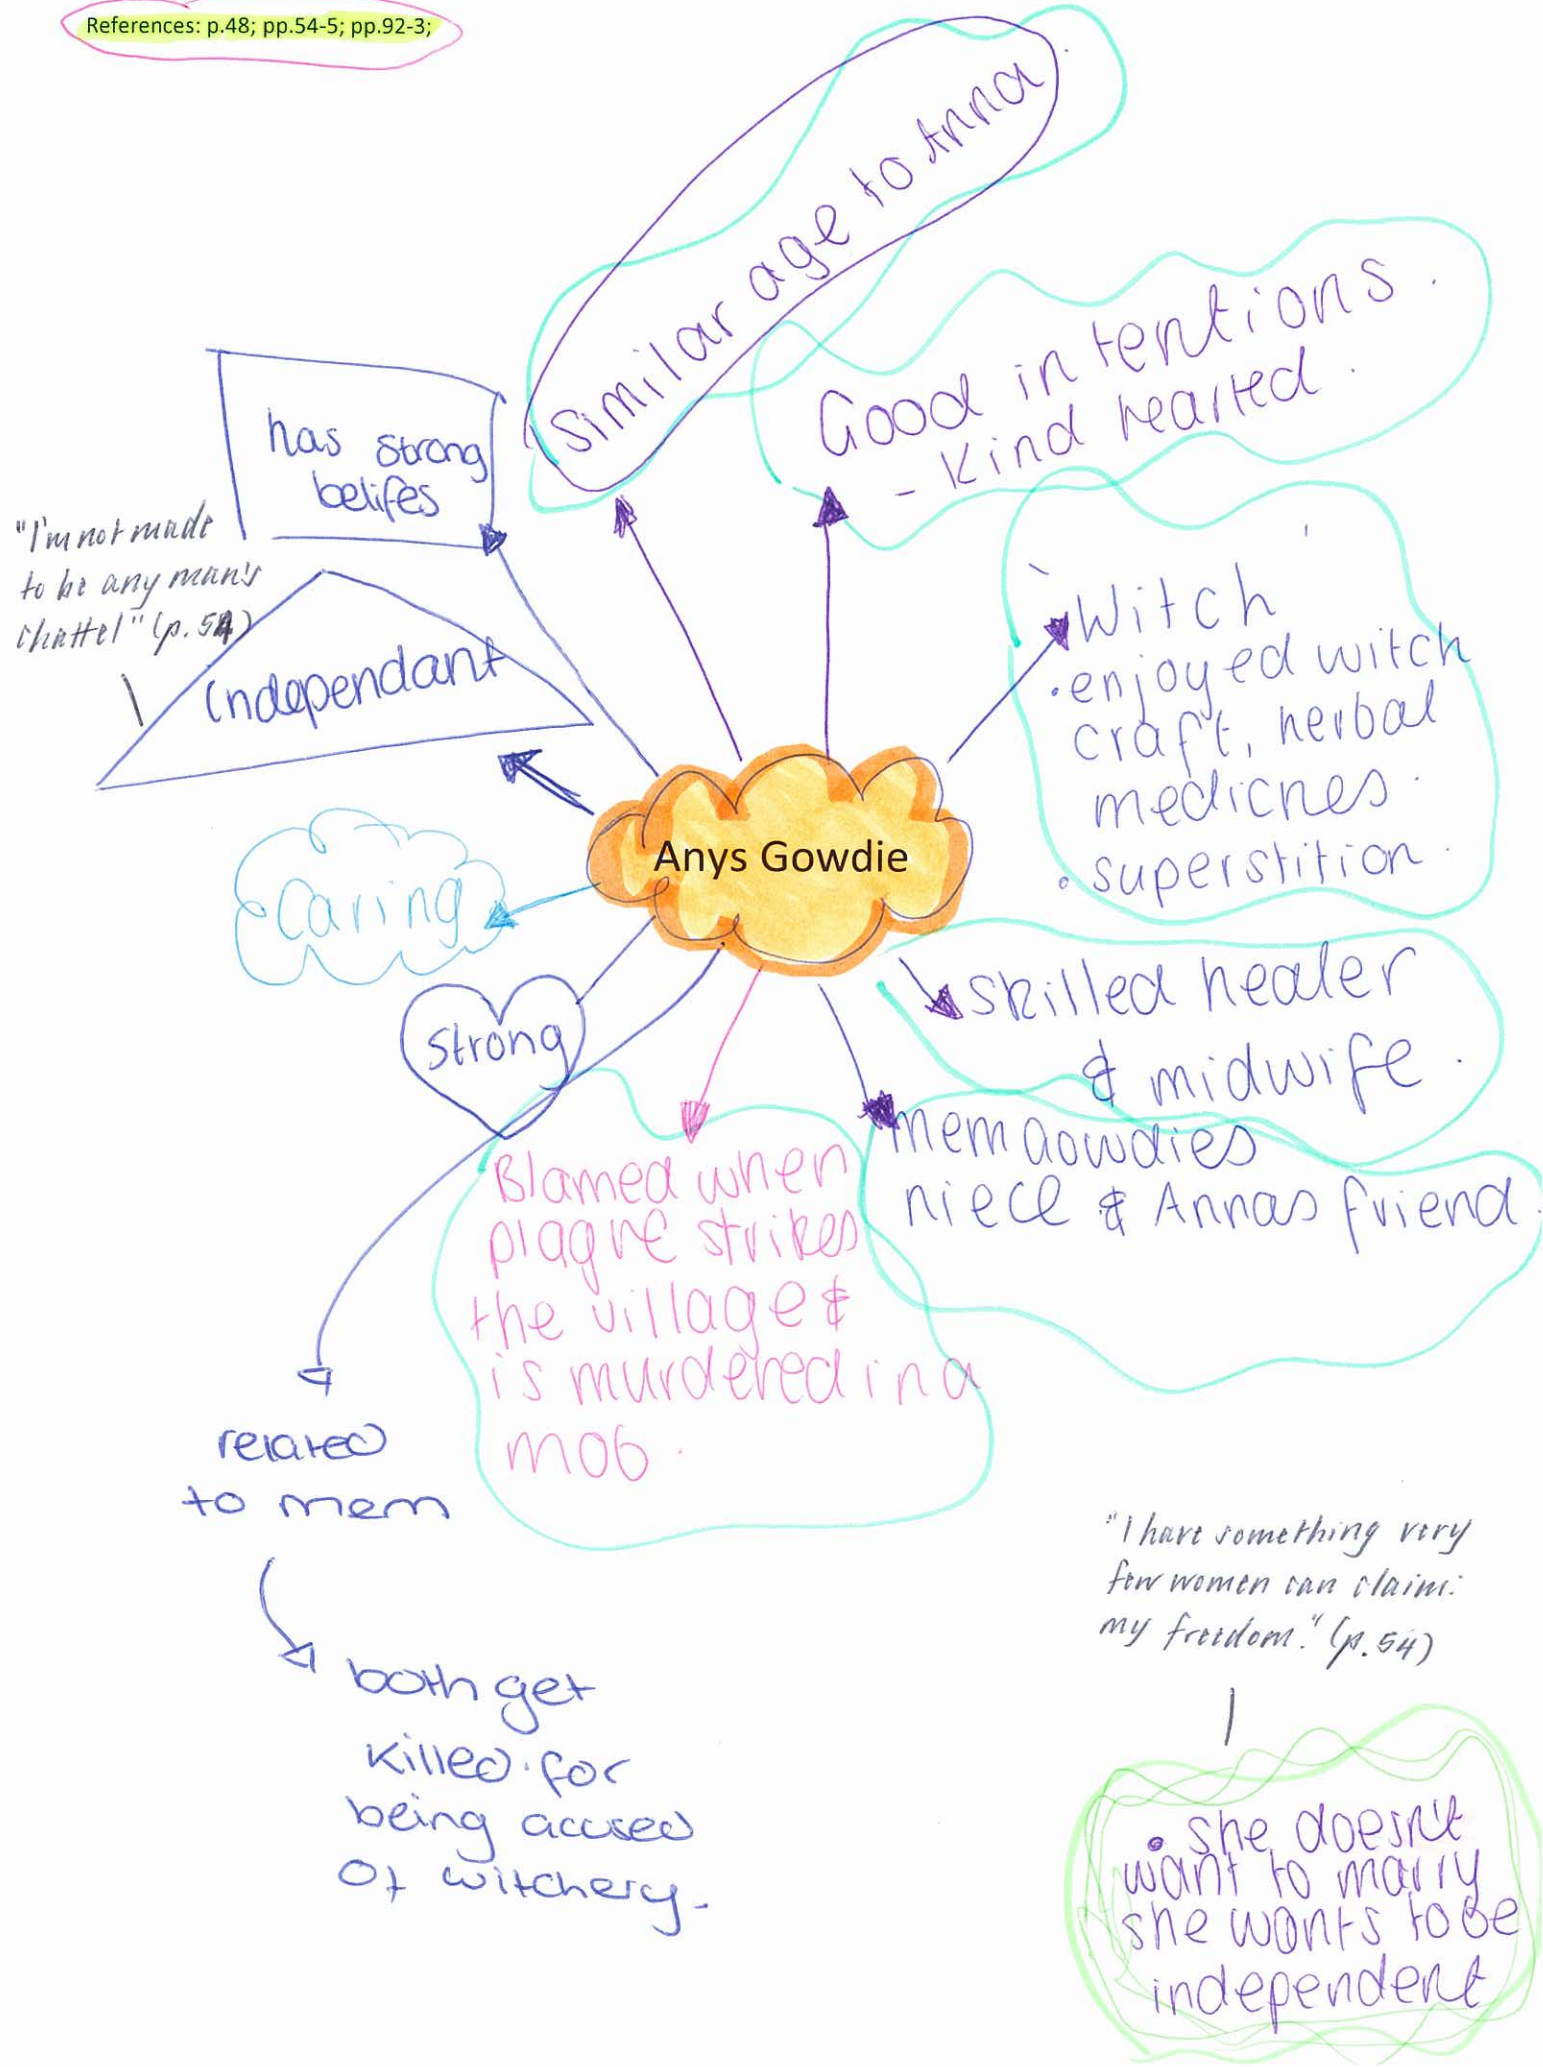 References: p.48; pp.54-5; pp.92-3;
Similar age to Anna
Good intentions.
- Kind hearted.
has strong
belifes
"I'm not made
to be any man's
chattel" (p.54)
independant
Witch
• enjoyed witch
craft, herbal
medicnes.
• superstition.
Anys Gowdie
Caring
Strong
Skilled healer
& midwife.
mem Gowdies
niece & Annas friend.
Blamed when
plague strikes
the village &
is murdered in a
mob.
related
to mem
both get
killed for
being accused
of witchery.
"I have something very
few women can claim:
my freedom." (p.54)
• she doesn't
want to marry
she wants to be
independent